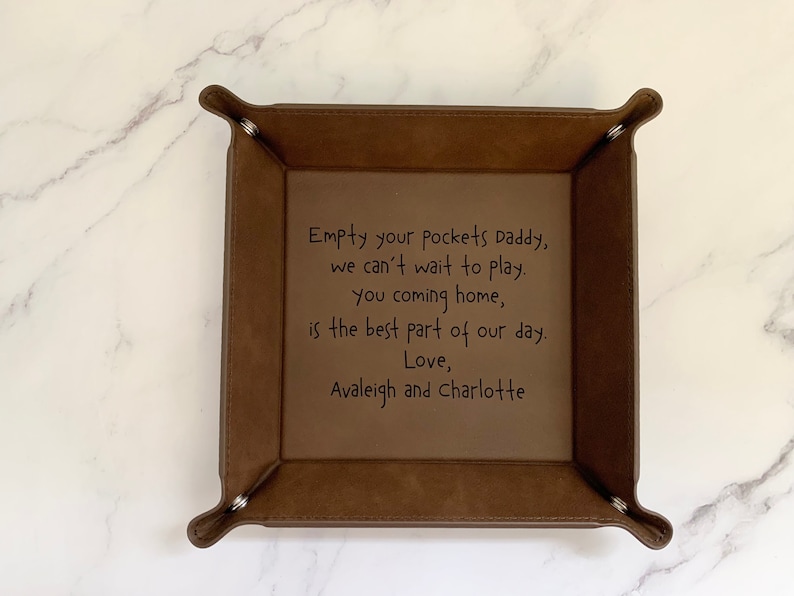 Empty your pockets Daddy,
we can't wait to play.
You coming home,
is the best part of our day.
Love,
Avaleigh and Charlotte